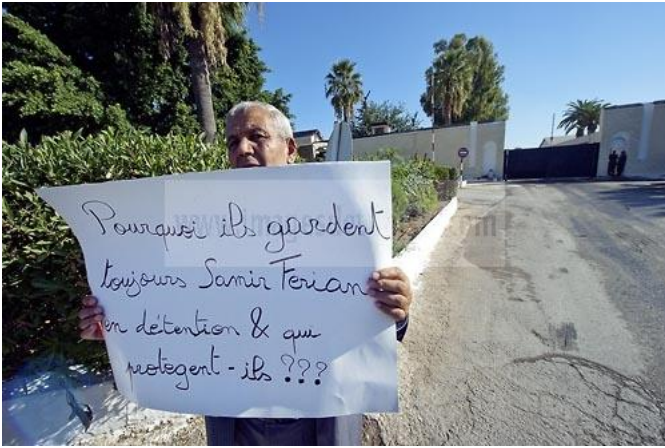 Pourquoi ils gardent
toujours Samir Ferian
en détention & qui
protegent-ils ???